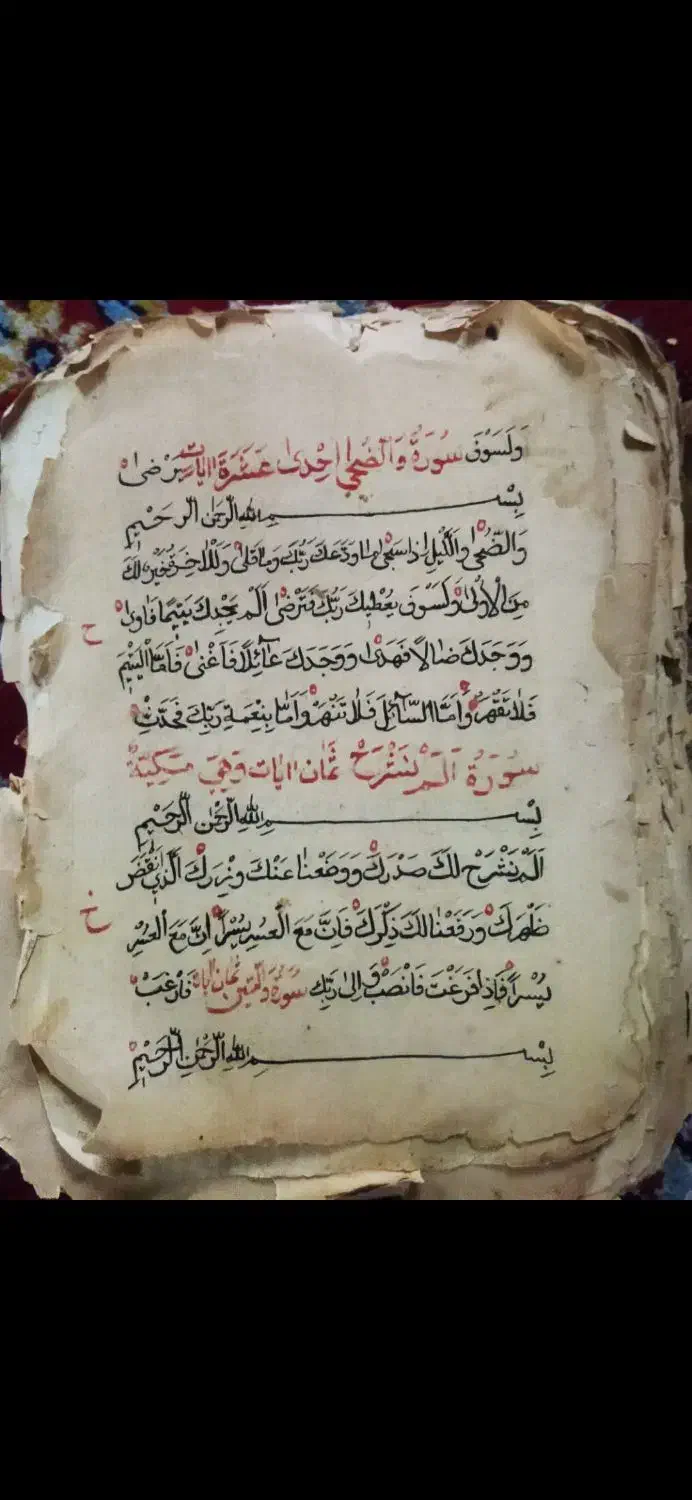 وَلَسَوْفَ سُورَةُ وَالضُّحٰى اِحْدٰى عَشَرَةَ اٰيَات يَرْضٰى
بِسْمِ اللهِ الرَّحْمٰنِ الرَّحِيْمِ
وَالضُّحٰى وَالَّيْلِ اِذَا سَجٰى مَا وَدَّعَكَ رَبُّكَ وَمَا قَلٰى وَلَلْاٰخِرَةُ خَيْرٌ لَكَ
مِنَ الْاُوْلٰى وَلَسَوْفَ يُعْطِيْكَ رَبُّكَ فَتَرْضٰى اَلَمْ يَجِدْكَ يَتِيْمًا فَاٰوٰى
ح
وَوَجَدَكَ ضَالًا فَهَدٰى وَوَجَدَكَ عَآئِلًا فَاَغْنٰى فَاَمَّا الْيَتِيْمَ
فَلَا تَقْهَرْ وَاَمَّا السَّآئِلَ فَلَا تَنْهَرْ وَاَمَّا بِنِعْمَةِ رَبِّكَ فَحَدِّثْ
سُوْرَةُ اَلَمْ نَشْرَحْ ثَمَان اٰيَات وَهِيَ مَكِّيَّةٌ
بِسْمِ اللهِ الرَّحْمٰنِ الرَّحِيْمِ
اَلَمْ نَشْرَحْ لَكَ صَدْرَكَ وَوَضَعْنَا عَنْكَ وِزْرَكَ الَّذِيْ اَنْقَضَ
خ
ظَهْرَكَ وَرَفَعْنَا لَكَ ذِكْرَكَ فَاِنَّ مَعَ الْعُسْرِ يُسْرًا اِنَّ مَعَ الْعُسْرِ
يُسْرًا فَاِذَا فَرَغْتَ فَانْصَبْ وَاِلٰى رَبِّكَ سُورَةُ وَالتِّيْنِ ثَمَان اٰيَات فَارْغَبْ
بِسْمِ اللهِ الرَّحْمٰنِ الرَّحِيْمِ